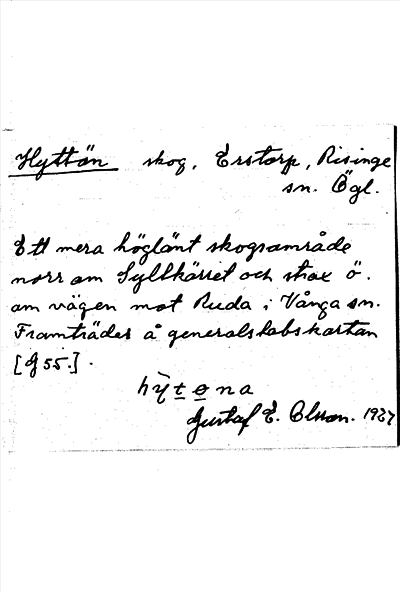 Hyttön skog, Erstorp, Risinge
sn. Ögl.
Ett mera höglänt skogsområde
norr om Syltkärret och strax ö.
om vägen mot Ruda i Vånga sn.
Framträder å generalstabskartan
[G 55.].
hỳtøna
Gustaf E. Olsson. 1927